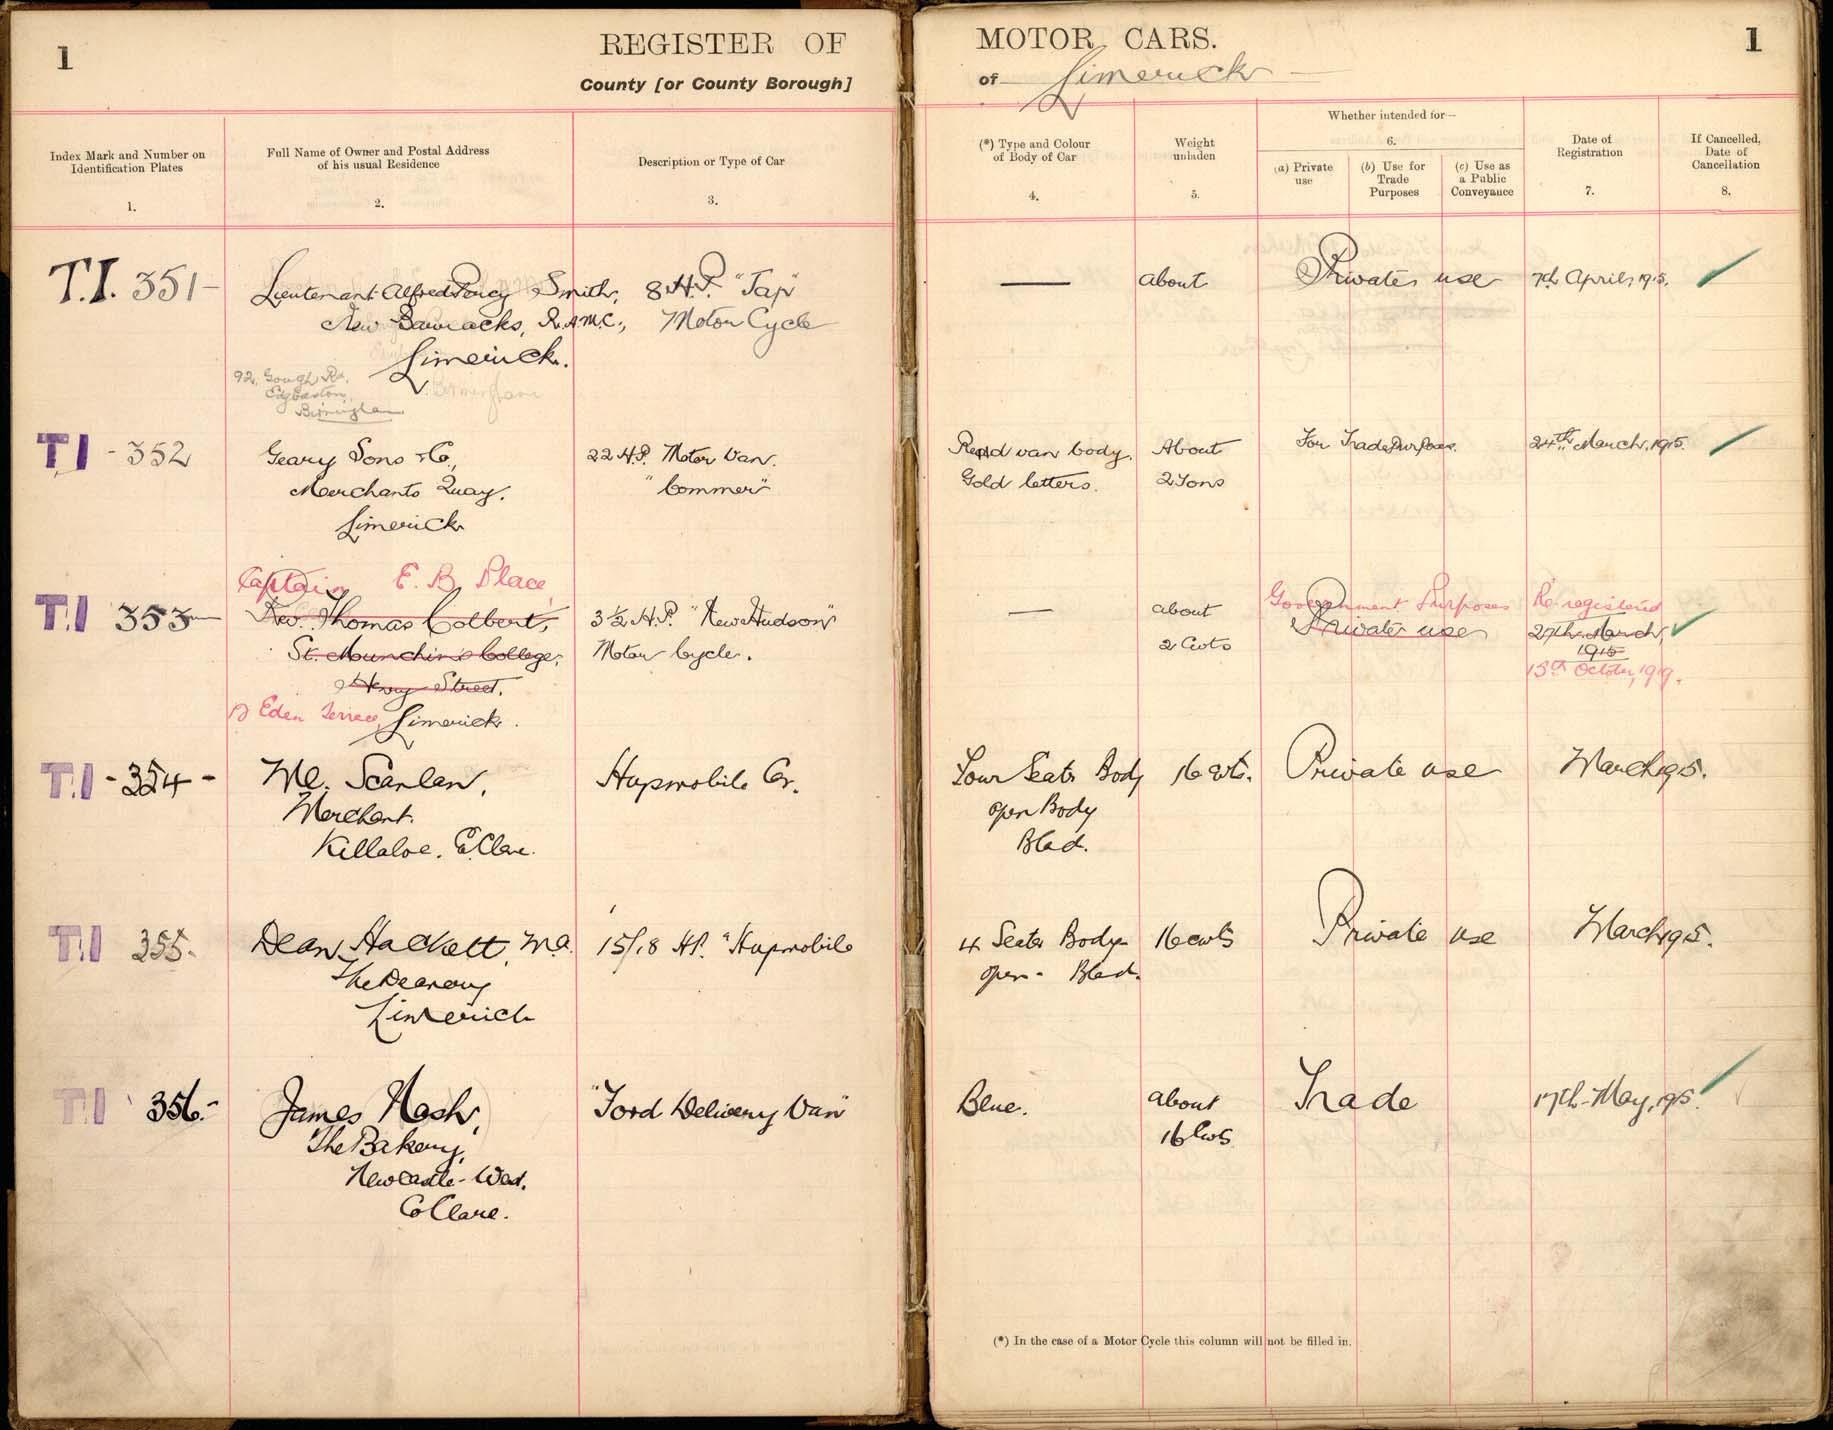 1
REGISTER OF
County [or County Borough]
MOTOR CARS.
of Limerick
1
Index Mark and Number on
Identification Plates
1.
Full Name of Owner and Postal Address
of his usual Residence
2.
Description or Type of Car
3.
(*) Type and Colour
of Body of Car
4.
Weight
unladen
5.
Whether intended for—
6.
(a) Private
use
(b) Use for
Trade
Purposes
(c) Use as
a Public
Conveyance
Date of
Registration
7.
If Cancelled,
Date of
Cancellation
8.
T.I. 351-
Lieutenant Alfred Percy Smith,
New Barracks, R.A.M.C.,
Limerick.
92, Gough Rd.
Edgbaston,
Birmingham
8 H.P. "Jap"
Motor Cycle
—
about
Private use
7th April, 1915.
T.I - 352
Geary Sons & Co.,
Merchants Quay.
Limerick
22 H.P. Motor Van.
"Commer"
Red van body.
Gold letters.
About
2 Tons
For Trade Purposes.
24th March, 1915.
T.I 353-
Captain E. B. Place,
Rev. Thomas Colbert,
St. Munchins College,
Henry Street.
Eden Terrace, Limerick.
3½ H.P. "New Hudson"
Motor Cycle.
—
about
2 Cwts
Government Purposes
Private use
Re-registered
27th March,
1915
15th October, 1919.
T.I - 354 -
Ml. Scanlan,
Merchant.
Killaloe. Co. Clare.
Hupmobile Car.
Four Seater Body
open Body
Black.
16 cwts.
Private use
March 1915.
T.I 355.
Dean Hackett, M.A.
The Deanery
Limerick
15/18 H.P. "Hupmobile
4 Seater Body
open - Black.
16 cwts
Private use
March 1915.
T.I 356.-
James Nash,
The Bakery,
Newcastle-West.
Co Clare.
"Ford Delivery Van"
Blue.
about
16 Cwts
Trade
17th May, 1915.
(*) In the case of a Motor Cycle this column will not be filled in.